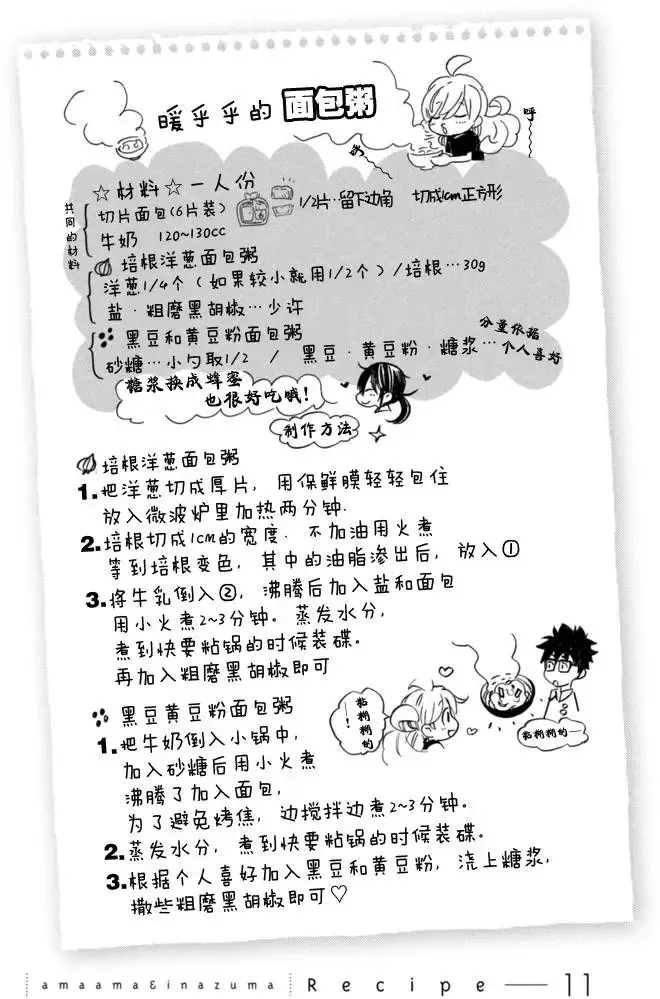 暖乎乎的 面包粥
呼
呼
☆材料☆一人份
共同的材料
切片面包(6片装) 1/2片·留下边角 切成1cm正方形
牛奶 120~130cc
培根洋葱面包粥
洋葱1/4个(如果较小就用1/2个)/培根…30g
盐·粗磨黑胡椒…少许
黑豆和黄豆粉面包粥
砂糖…小勺取1/2 / 黑豆·黄豆粉·糖浆…分量依据
个人喜好
糖浆换成蜂蜜
也很好吃哦!
制作方法
培根洋葱面包粥
1.把洋葱切成厚片,用保鲜膜轻轻包住
放入微波炉里加热两分钟.
2.培根切成1cm的宽度.不加油用火煮
等到培根变色,其中的油脂渗出后,放入①
3.将牛乳倒入②,沸腾后加入盐和面包
用小火煮2~3分钟。蒸发水分,
煮到快要粘锅的时候装碟。
再加入粗磨黑胡椒即可
黏糊糊的—!
黏糊糊的—
黑豆黄豆粉面包粥
1.把牛奶倒入小锅中,
加入砂糖后用小火煮
沸腾了加入面包,
为了避免烤焦,边搅拌边煮2~3分钟。
2.蒸发水分,煮到快要粘锅的时候装碟。
3.根据个人喜好加入黑豆和黄豆粉,浇上糖浆,
撒些粗磨黑胡椒即可♡
amaama&inazuma Recipe — 11